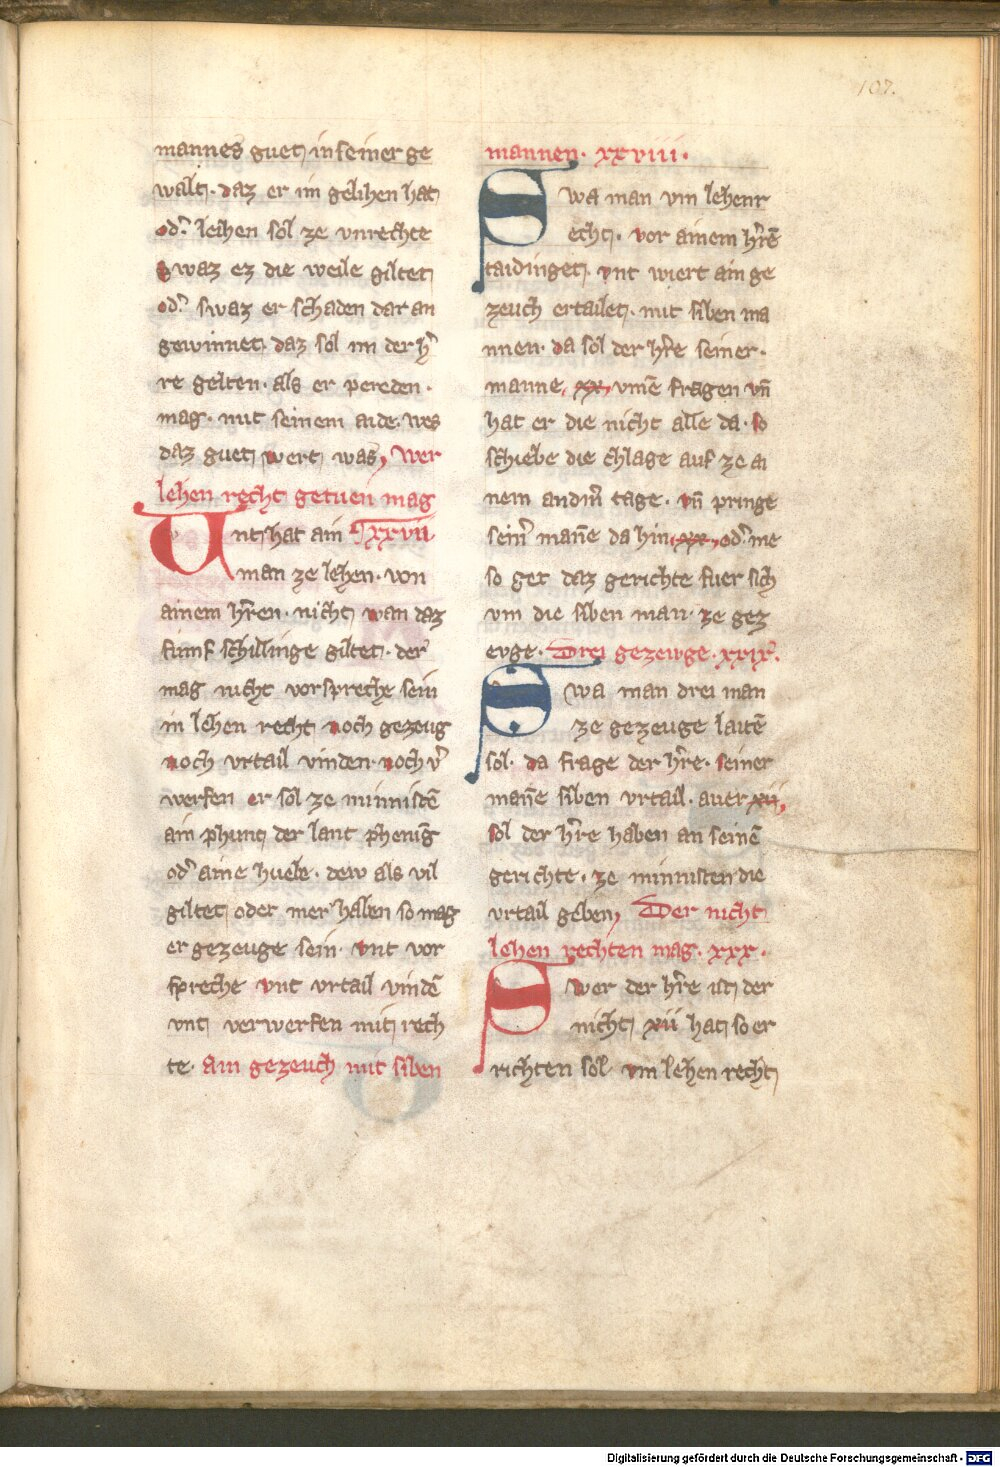 107.
mannes guet in seiner ge
walt. daz er im gelihen hat
od᾽ leihen sol ze vnrechte
Swaz ez die weile giltet
od᾽ swaz er schaden dar an
gewinnet. daz sol im der h᾽
re gelten. als er pereden.
mag. mit seinem aide. wes
daz guet wert was, Wer
lehen recht getuen mag
Vnt hat ain XXVII.
man ze lehen. von
ainem h᾽ren. nicht wan daz
fumf schillinge giltet. der
mag nicht vorspreche sein
in lehen recht noch gezeug
noch vrtail vinden. noch v᾽
werfen er sol ze minnistē
ain phunt der lant phenīg
od᾽ aine huebe. dew als vil
giltet oder mer haben so mag
er gezeuge sein. vnt vor
spreche vnt vrtail vindē
vnt verwerfen mit rech
te. Ain gezeuch mit siben
mannen. xxviii.
Swa man vm lehenr
echt. vor ainem h᾽rē
taidinget. vnt wiert ain ge
zeuch ertailet. mit siben ma
nnen. da sol der h᾽re seiner.
manne, xx, vmē fragen vn̄
hat er die nicht alle da. so
schiebe die chlage auf ze ai
nem andm᾽ tage. vn̄ pringe
sein᾽ man̄e da hin, xx, od᾽ me
so get daz gerichte fuer sich
vm die siben man. ze gez
evge. Drei gezewge. xxix.
Swa man drei man
ze gezeuge laitē
sol. da frage der h᾽re. seiner
man̄e siben vrtail. aver xii,
sol der h᾽re haben an seinē
gerichte. ze minnisten die
vrtail geben, Der nicht
lehen rechten mag. xxx.
Swer der h᾽re ist der
nicht xii hat so er
richten sol. vm lehen recht
Digitalisierung gefördert durch die Deutsche Forschungsgemeinschaft - DFG